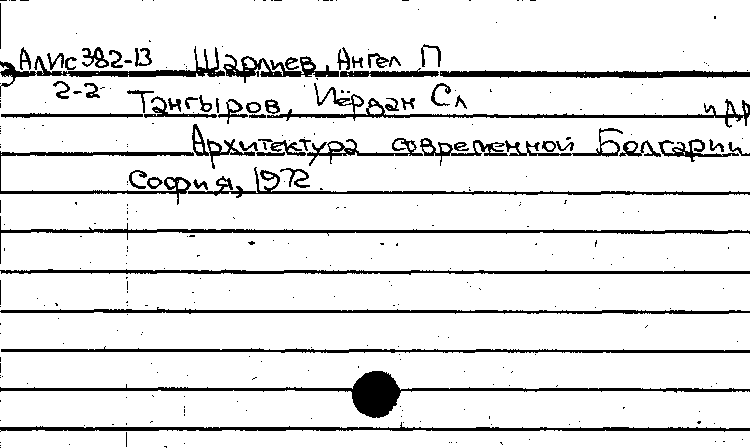 АлИс382-13 Шарлиев, Ангел П
2-2 Тангыров, Йёрдан Сл и др
Архитектура современной Болгарии
София, 1972.